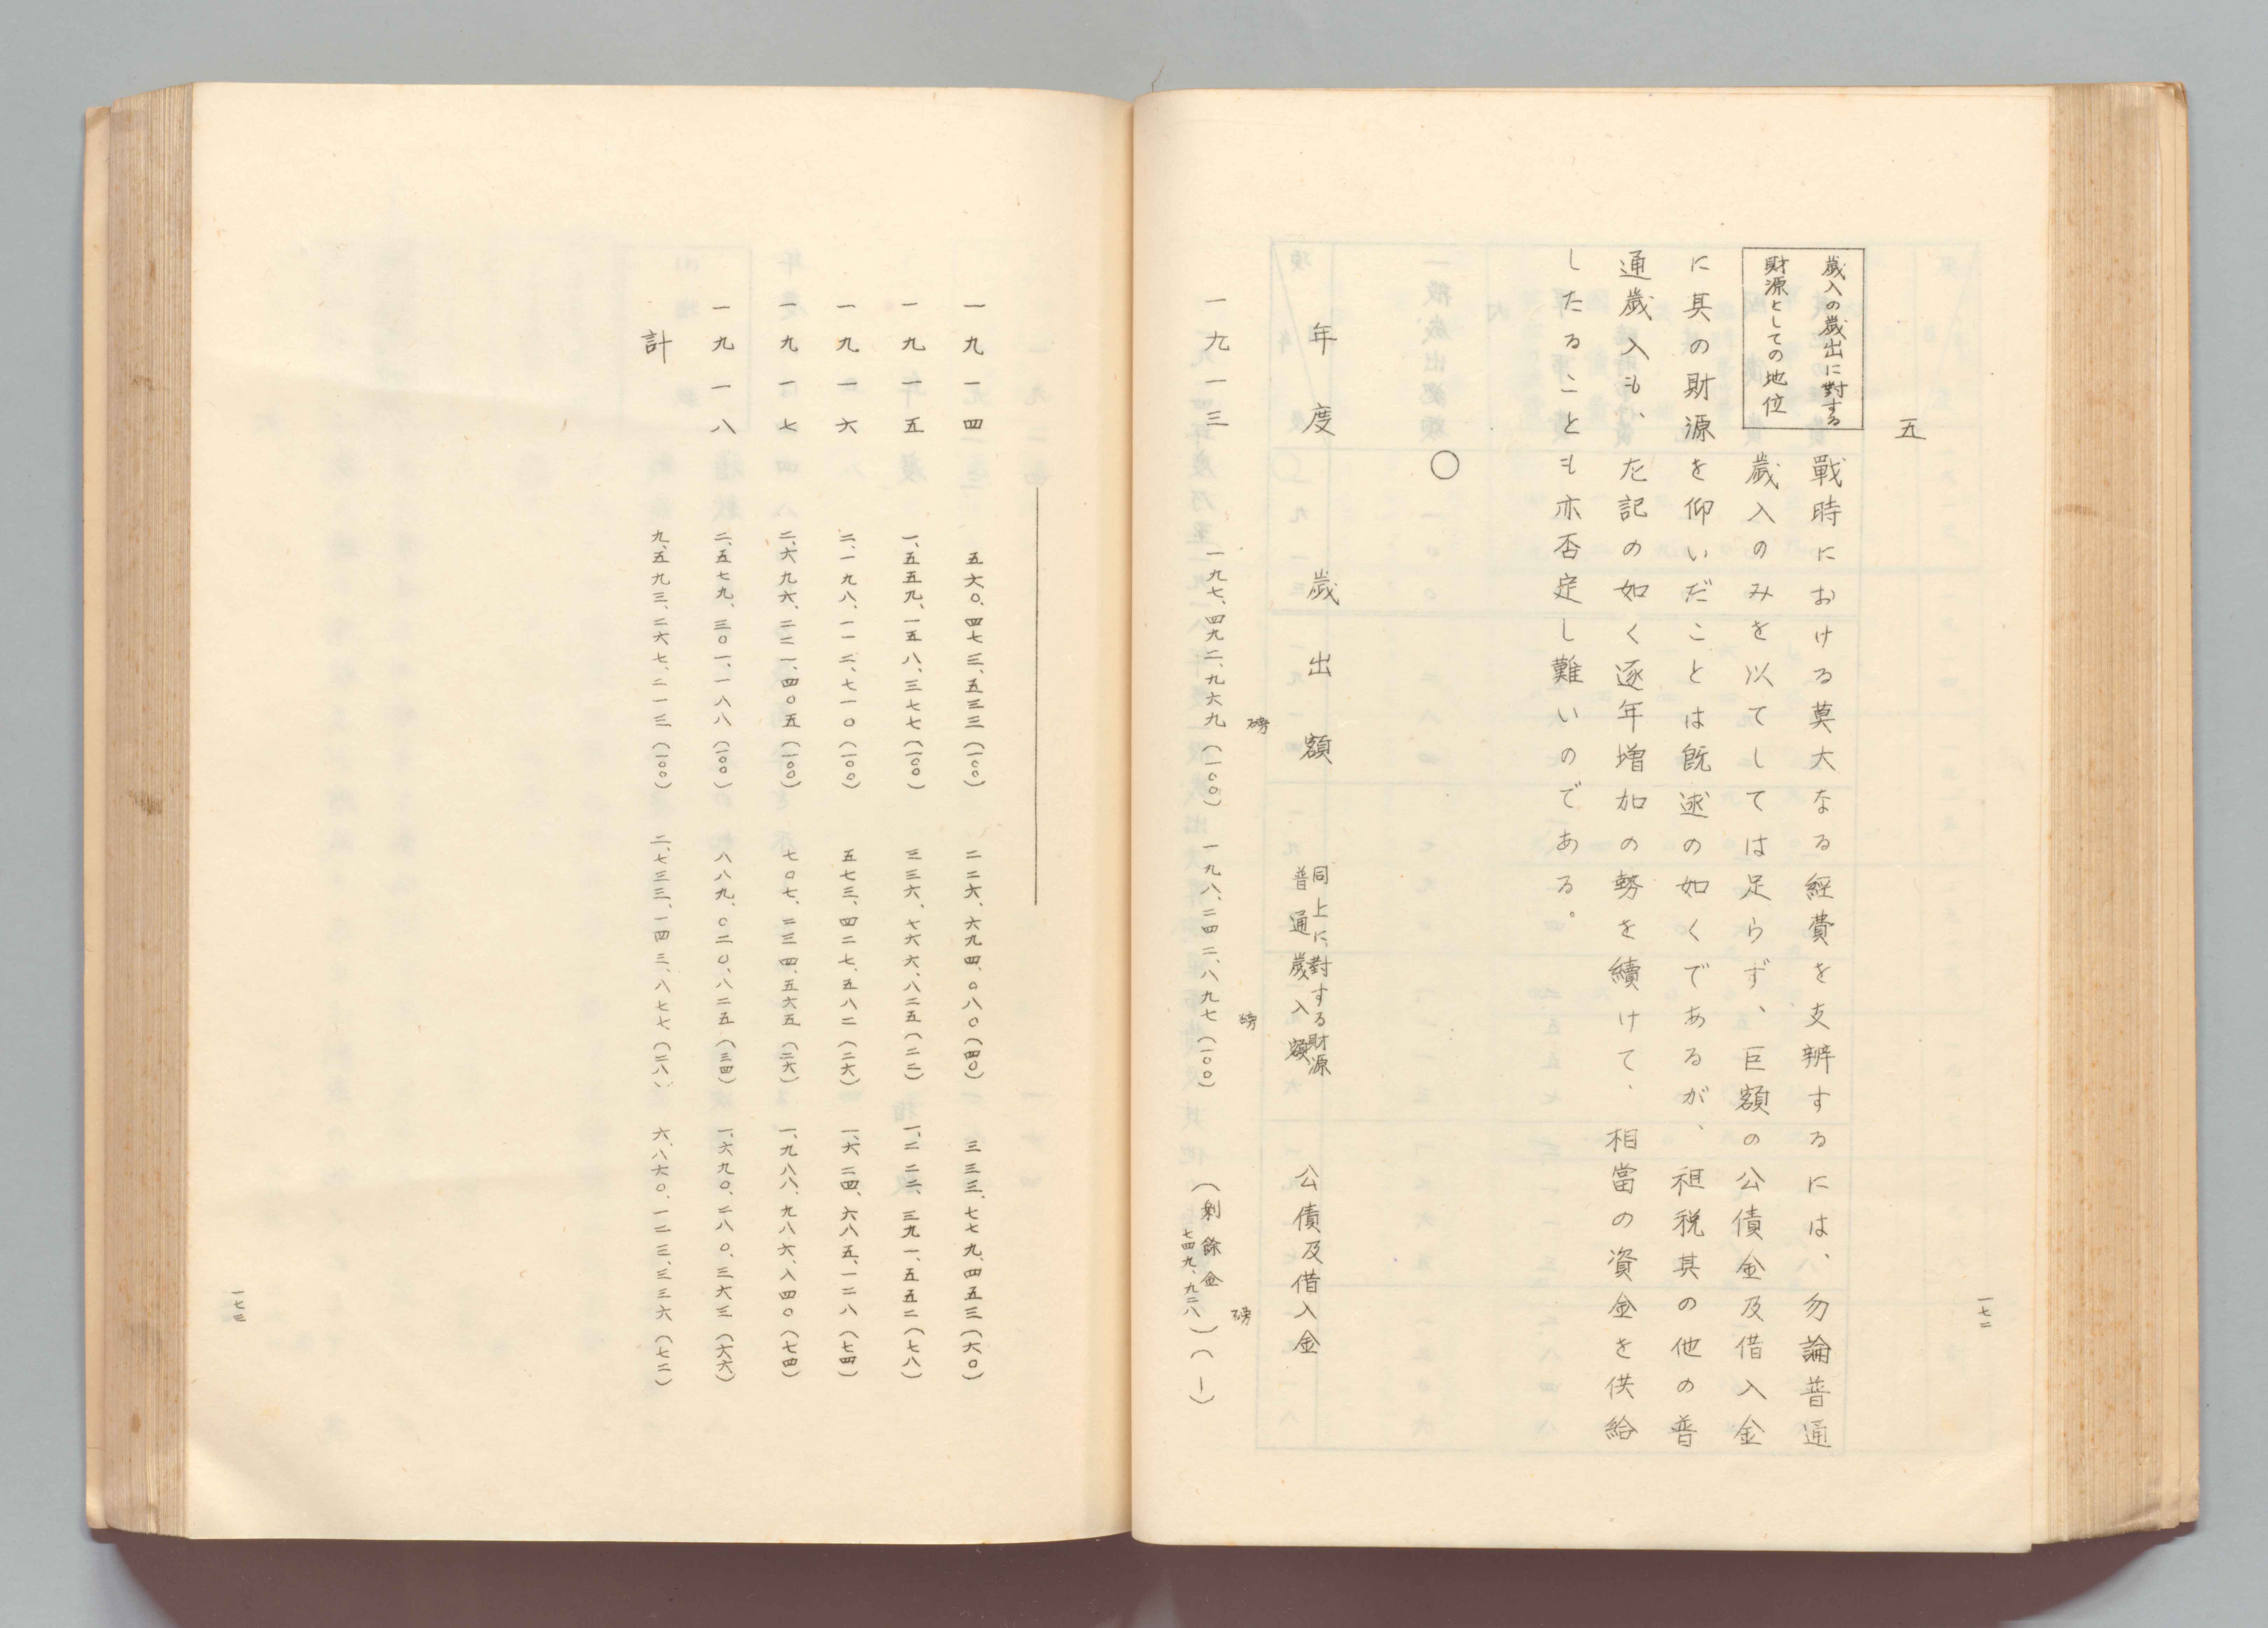 五
歲入の歲出に對する
財源としての地位
戰時における莫大なる經費を支辨するには、勿論普通
歲入のみを以てしては足らず、巨額の公債金及借入金
に其の財源を仰いだことは既述の如くであるが、租税其の他の普
通歲入も、左記の如く逐年増加の勢を續けて、相當の資金を供給
したることも亦否定し難いのである。
〇
年度 歲出額 同上に對する財源 普通歲入額 公債及借入金
磅 磅 磅
一九一三 一九七、四九二、九六九(一〇〇) 一九八、二四二、八九七(一〇〇) (剩餘金 七四九、九二八)(ー)
一七二
一九一四 五六〇、四七三、五三三(一〇〇) 二二六、六九四、〇八〇(四〇) 三三三、七七九、四五三(六〇)
一九一五 一、五五九、一五八、三七七(一〇〇) 三三六、七六六、八二五(二二) 一、二二二、三九一、五五二(七八)
一九一六 二、一九八、一一二、七一〇(一〇〇) 五七三、四二七、五八二(二六) 一、六二四、六八五、一二八(七四)
一九一七 二、六九六、二二一、四〇五(一〇〇) 七〇七、二三四、五六五(二六) 一、九八八、九八六、八四〇(七四)
一九一八 二、五七九、三〇一、一八八(一〇〇) 八八九、〇二〇、八二五(三四) 一、六九〇、二八〇、三六三(六六)
計 九、五九三、二六七、二一三(一〇〇) 二、七三三、一四三、八七七(二八) 六、八六〇、一二三、三三六(七二)
一七三